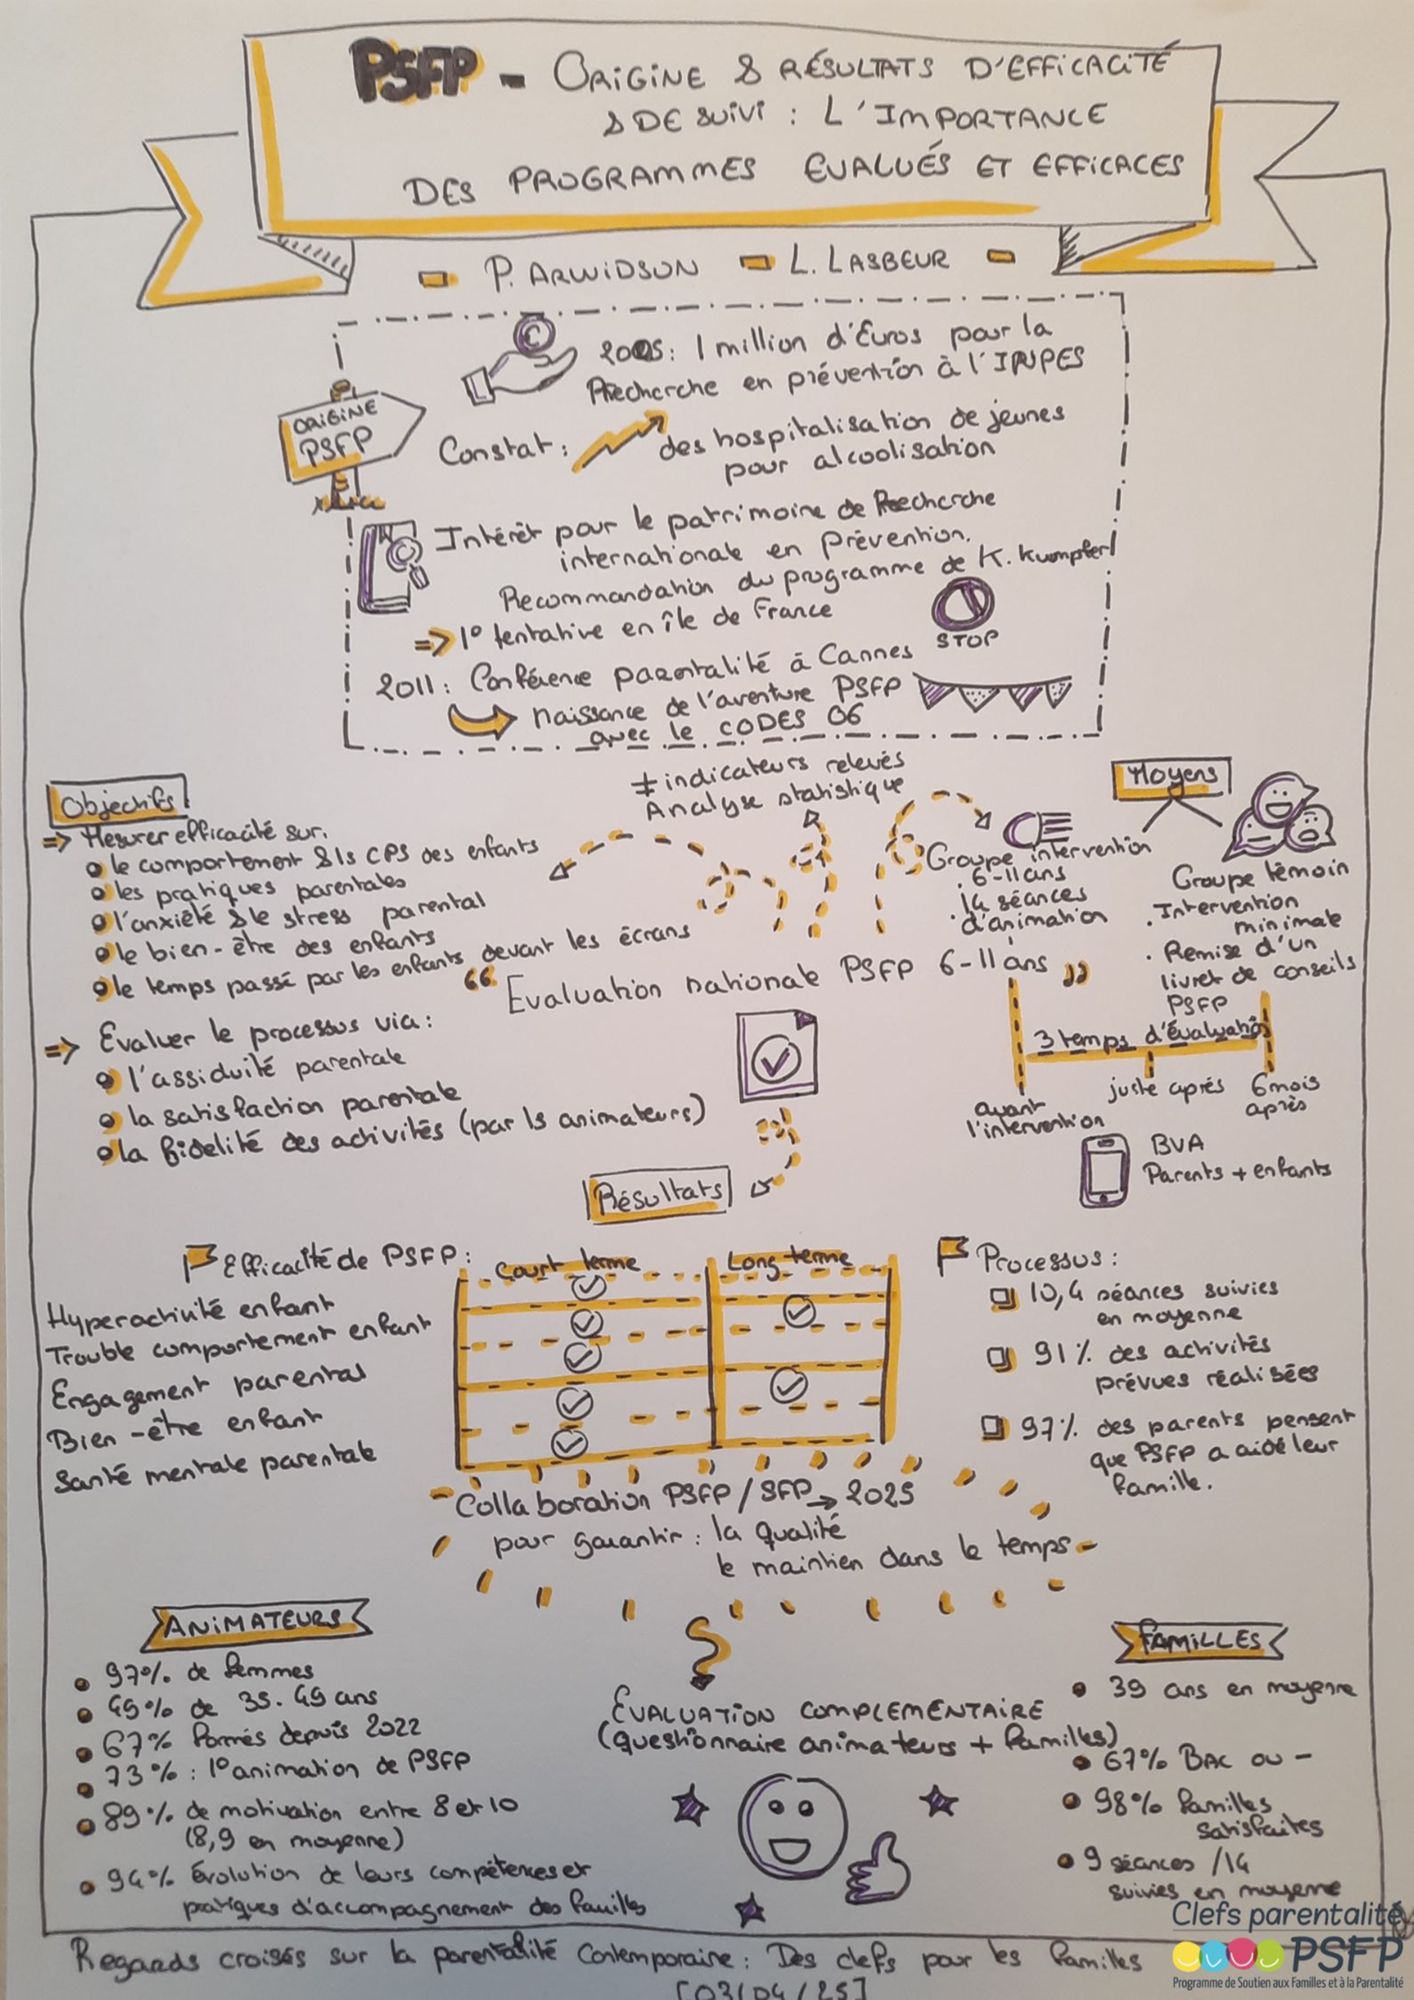 PSFP - ORIGINE & RÉSULTATS D'EFFICACITÉ
& DE SUIVI : L'IMPORTANCE
DES PROGRAMMES EVALUÉS ET EFFICACES
P. ARWIDSON - L. LASBEUR
ORIGINE
PSFP
2005 : 1 million d'Euros pour la
Recherche en prévention à l'INPES
Constat :
des hospitalisation de jeunes
pour alcoolisation
Intérêt pour le patrimoine de Recherche
internationale en prévention.
Recommandation du programme de K. Kumpfer
=> 1° tentative en île de France
STOP
2011 : Conférence parentalité à Cannes
naissance de l'aventure PSFP
avec le CODES 06
Objectifs
=> Mesurer efficacité sur :
le comportement & ls CPS des enfants
les pratiques parentales
l'anxiété & le stress parental
le bien-être des enfants
le temps passé par les enfants devant les écrans
=> Evaluer le processus via :
l'assiduité parentale
la satisfaction parentale
la fidelité des activités (par ls animateurs)
≠ indicateurs relevés
Analyse statistique
Moyens
Groupe intervention
. 6-11 ans
14 séances
. d'animation
Groupe témoin
. Intervention
minimale
. Remise d'un
livret de conseils
PSFP
“ Evaluation nationale PSFP 6-11 ans ”
3 temps d'évaluation
avant
l'intervention
juste après
6 mois
après
BVA
Parents + enfants
Résultats
Efficacité de PSFP :
Court terme
Long terme
Hyperactivité enfant
Trouble comportement enfant
Engagement parental
Bien-être enfant
Santé mentale parentale
Processus :
10,4 séances suivies
en moyenne
91% des activités
prévues réalisées
97% des parents pensent
que PSFP a aidé leur
famille.
Collaboration PSFP / SFP → 2025
pour garantir : la qualité
le maintien dans le temps
ANIMATEURS
97% de femmes
49% de 35-49 ans
67% formés depuis 2022
73% : 1° animation de PSFP
89% de motivation entre 8 et 10
(8,9 en moyenne)
94% Évolution de leurs compétences et
pratiques d'accompagnement des familles
EVALUATION COMPLEMENTAIRE
(questionnaire animateurs + familles)
FAMILLES
39 ans en moyenne
67% BAC ou -
98% familles
satisfaites
9 séances /14
suivies en moyenne
Regards croisés sur la parentalité contemporaine : Des clefs pour les familles
[03/04/25]
Clefs parentalité
PSFP
Programme de Soutien aux Familles et à la Parentalité